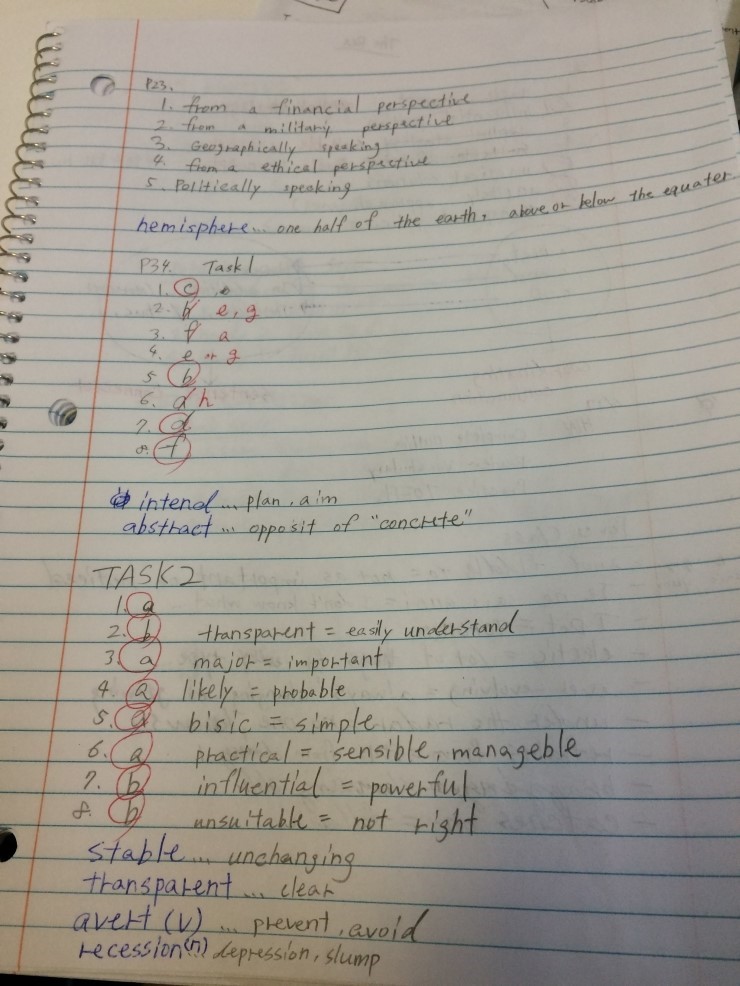 P23.
1. from a financial perspective
2. from a military perspective
3. Geographically speaking
4. from a ethical perspective
5. Politically speaking
hemisphere... one half of the earth, above or below the equater
P34. Task1
1. c
2. b e, g
3. f a
4. e or g
5 b
6. d h
7. d
8. f
intend... plan, aim
abstract... opposit of "concrete"
TASK2
1. a
2. b transparent = easily understand
3. a major = important
4. a likely = probable
5. a bisic = simple
6. a practical = sensible, manageble
7. b influential = powerful
8. b unsuitable = not right
stable... unchanging
transparent... clear
avert (v)... prevent, avoid
recession(n) depression, slump